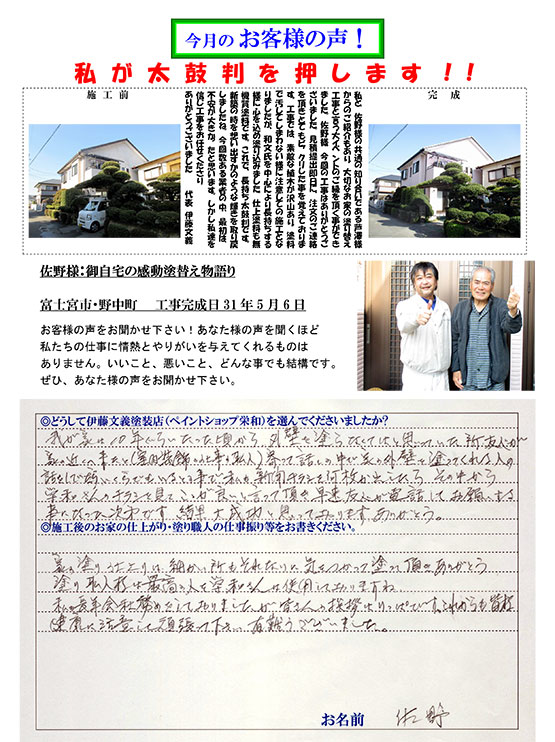 今月の お客様の声！
私が太鼓判を押します!!
施工前
完成
私と 佐野様の共通の知り合いである芦澤様
からのご紹介もあり、大切なお家の塗り替え
工事と言うイベントのご縁を頂く事ができ
ました。佐野様、今回の工事はありがとうご
ざいました。見積提出即日に、注文のご連絡
を頂きとてもビックリした事を覚えておりま
す。工事では、素敵な植木が沢山あり、塗料
で汚してしまわない様に注意しての施工とな
りましたが、和文氏を中心により長持ちする
様に心を込め塗り込みました。仕上塗料も無
機質塗料です。これで、長持ち太鼓判です。
新築の時を思い出すかのような輝きを取り戻
しましたね。今回数ある業者の中、最初は、
不安が大きかったと思います。しかし私達を
信じ工事をお任せくださり
ありがとうございました 代表 伊藤文義
佐野様：御自宅の感動塗替え物語り
富士宮市・野中町 工事完成日31年5月6日
お客様の声をお聞かせ下さい！あなた様の声を聞くほど
私たちの仕事に情熱とやりがいを与えてくれるものは
ありません。いいこと、悪いこと、どんな事でも結構です。
ぜひ、あなた様の声をお聞かせ下さい。
◎どうして伊藤文義塗装店（ペイントショップ栄和）を選んでくださいましたか？
我が家は10年ぐらいたった頃から 外壁を塗らなくてはと思っていた所友人が
寄って話しの中で家の外壁を塗ってくれる人の
新聞チラシを何枚か出したら その中から
栄和さんのチラシを見て ここが良いと言って頂き 早速友人が電話して お願いする
事になった次第です 結果大成功と思っております ありがとう。
◎施工後のお家の仕上がり・塗り職人の仕事振り等をお書きください。
家の塗り仕上りは、細かい所もそれなりに気をつかって塗って頂き ありがとう
塗り職人様は最高の人を栄和さんは使用しておりますね
私も長年会社務めをしておりましたが 皆さんの挨拶はりっぱです。これからも皆様
健康に注意して頑張って下さい 有難うございました。
お名前 佐野